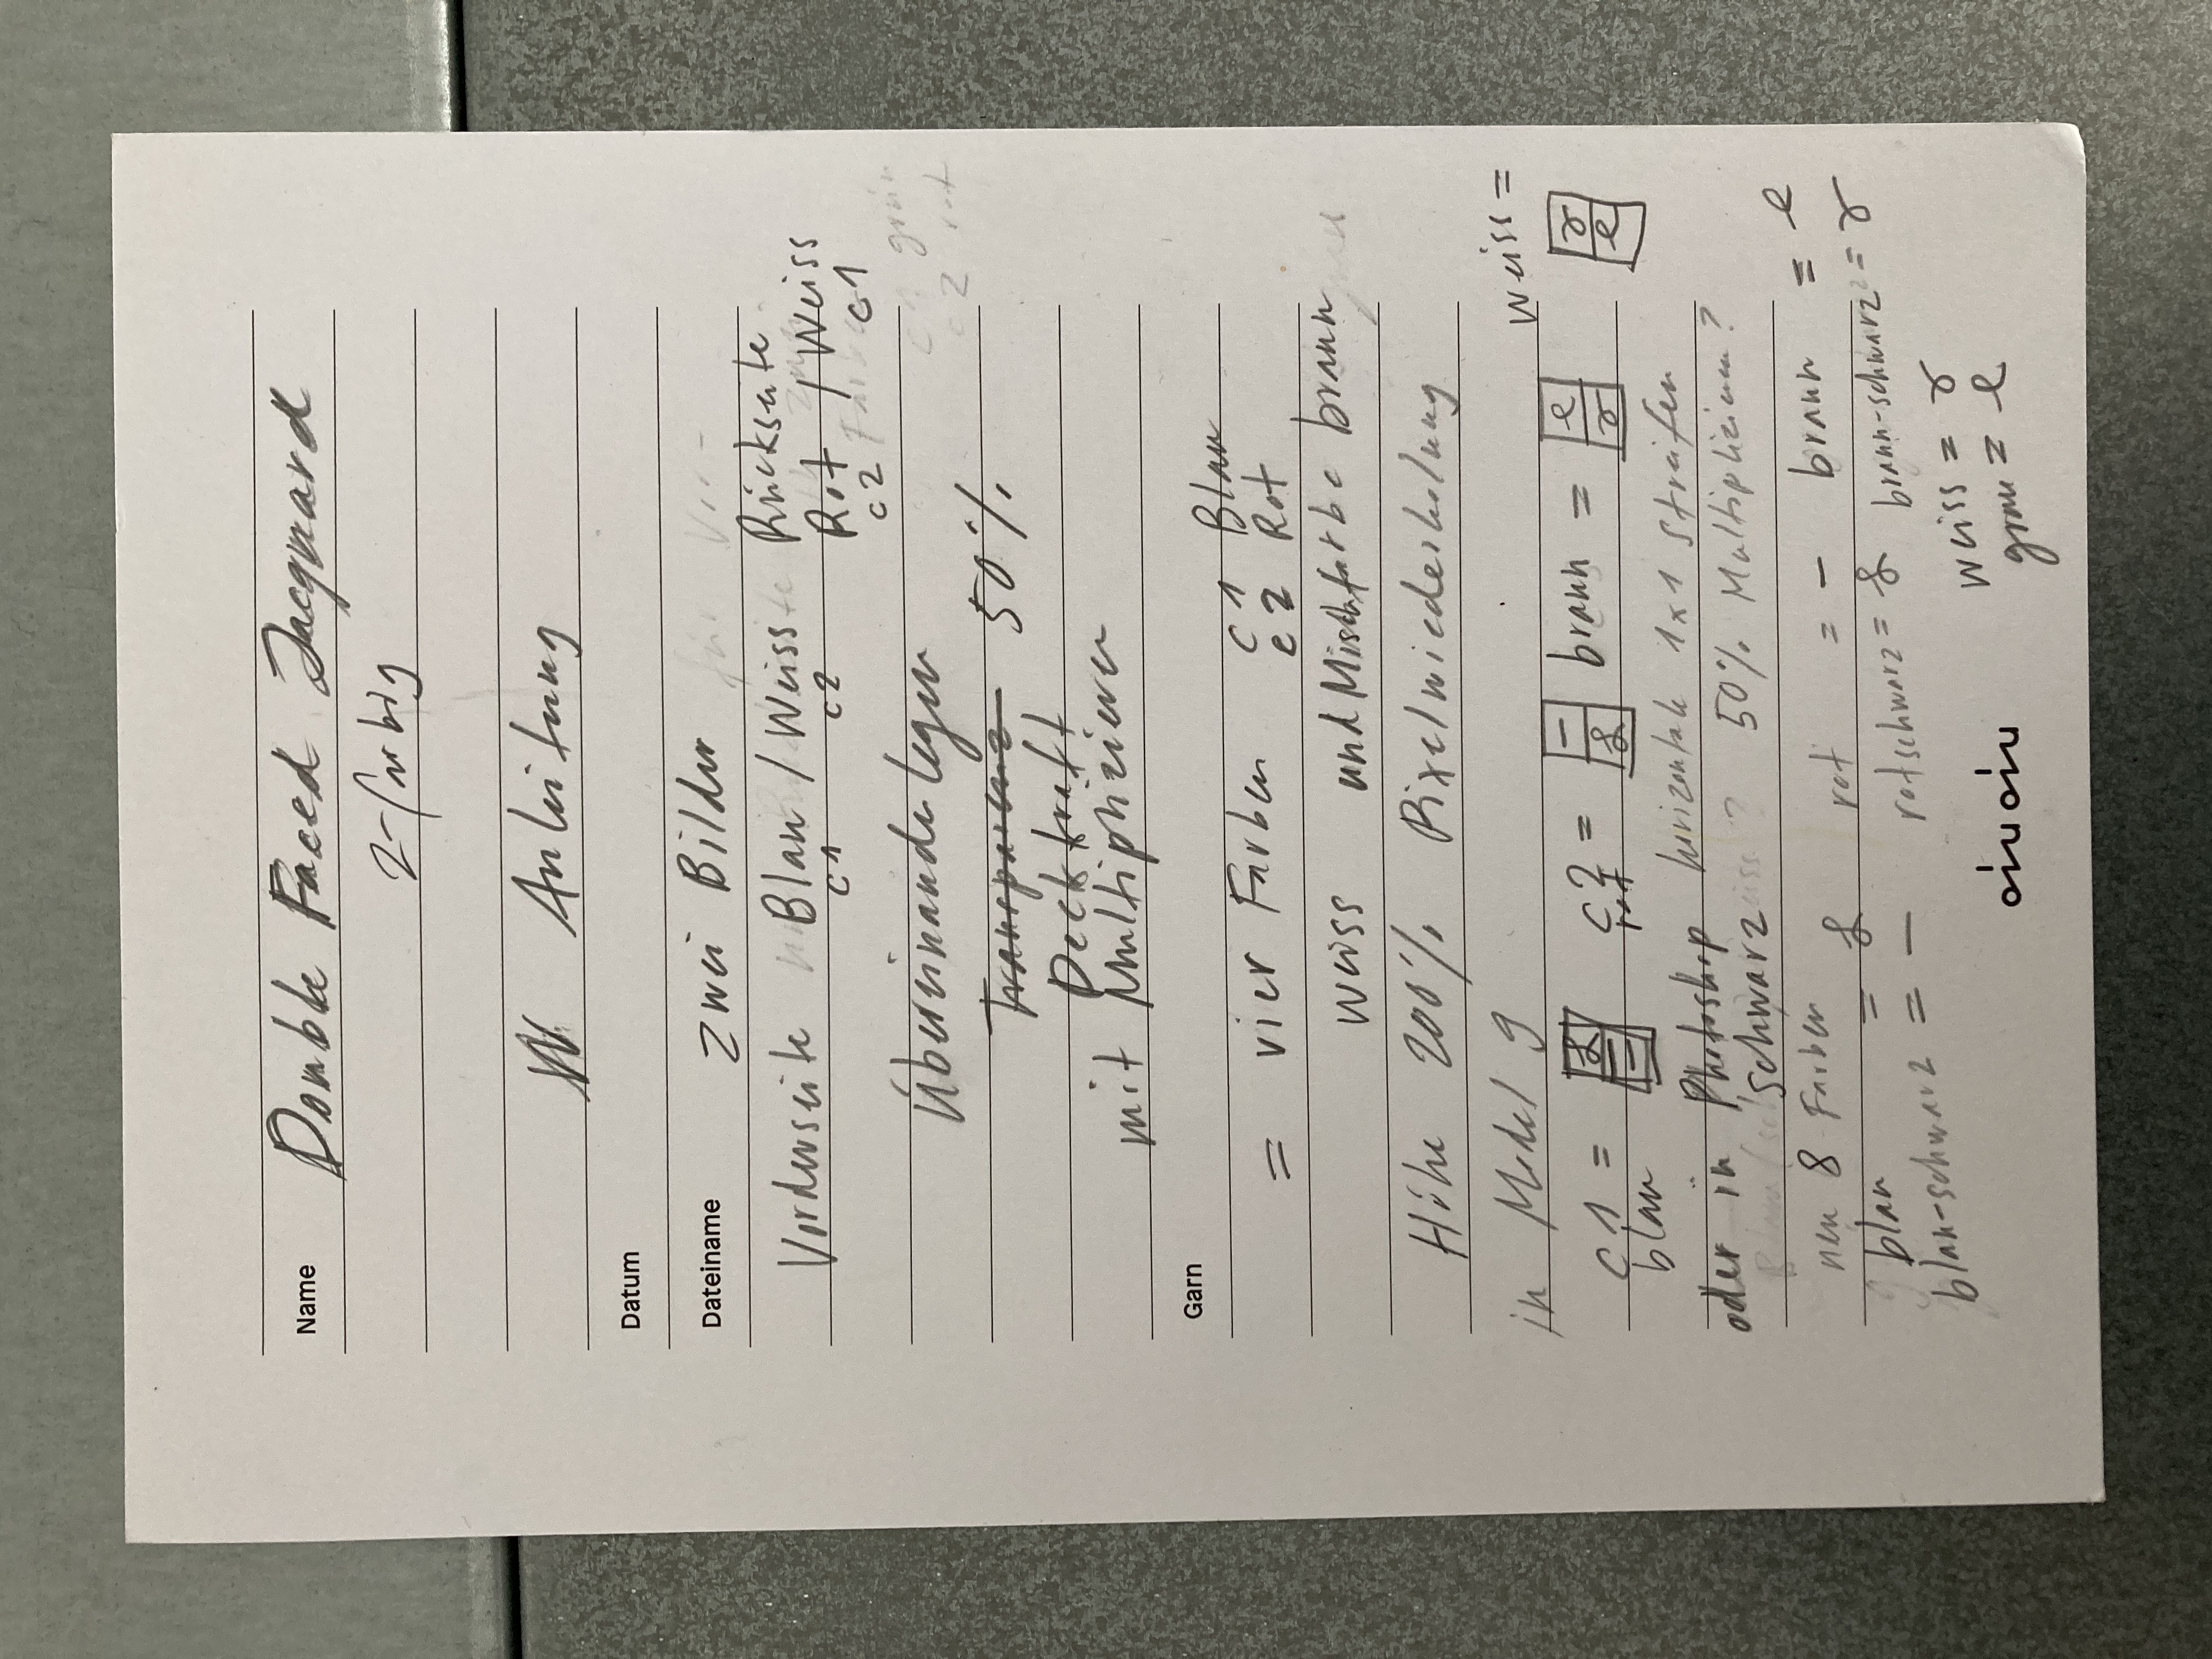 Name Double Faced Jacquard
2-farbig
Anleitung
Datum
Dateiname zwei Bilder
Vorderseite Blau/Weiss Rückseite Rot/Weiss
c1 c2 c2 c1
Übereinander legen
Transparenz 50%
Deckkraft
mit Multiplizieren
Garn
= vier Farben c1 Blau
c2 Rot
Weiss und Mischfarbe braun
Höhe 200% Pixelwiederholung
in Model 9 Weiss =
c1 = c2 = braun =
blau rot
oder in Photoshop horizontale 1x1 streifen
schwarz 50% Multiplizieren?
neu 8 Farben rot = – braun = e
blau =
blau-schwarz = – rotschwarz = braun-schwarz =
weiss =
grau = e
oiuoiu